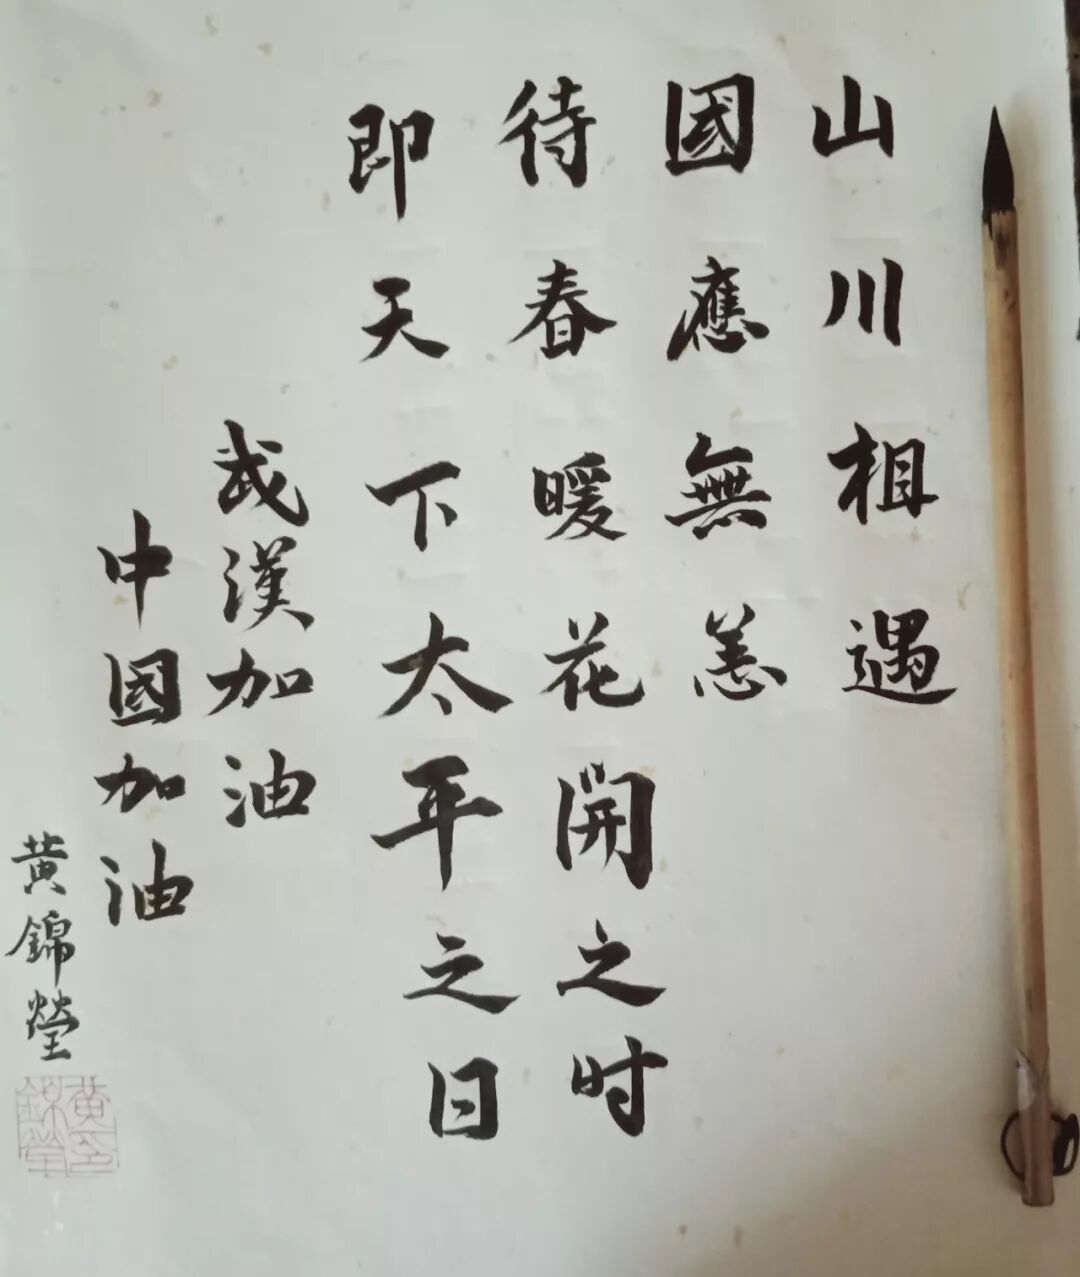 山川相遇
國應無恙
待春暖花開之时
即天下太平之日
武漢加油
中國加油
黄錦瑩
黄印錦瑩